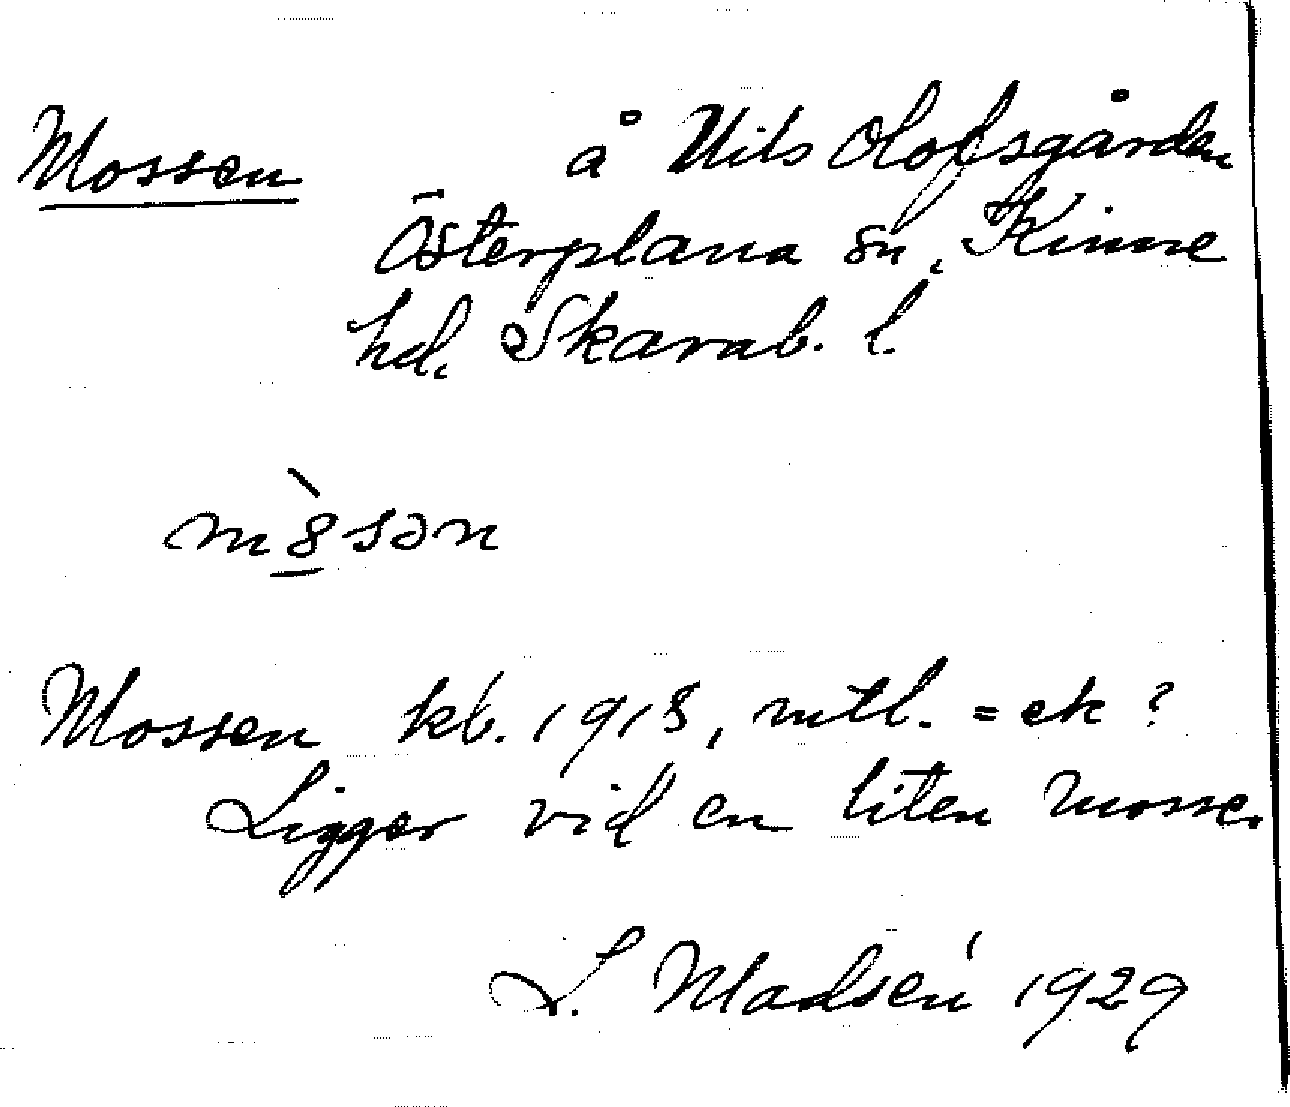 Mossen å Nils Olofsgården
Österplana sn, Kinne
hd. Skarab. l.
m8̱̀sən
Mossen kb. 1918, mtl. = ek?
Ligger vid en liten mosse.
L. Madsén 1929